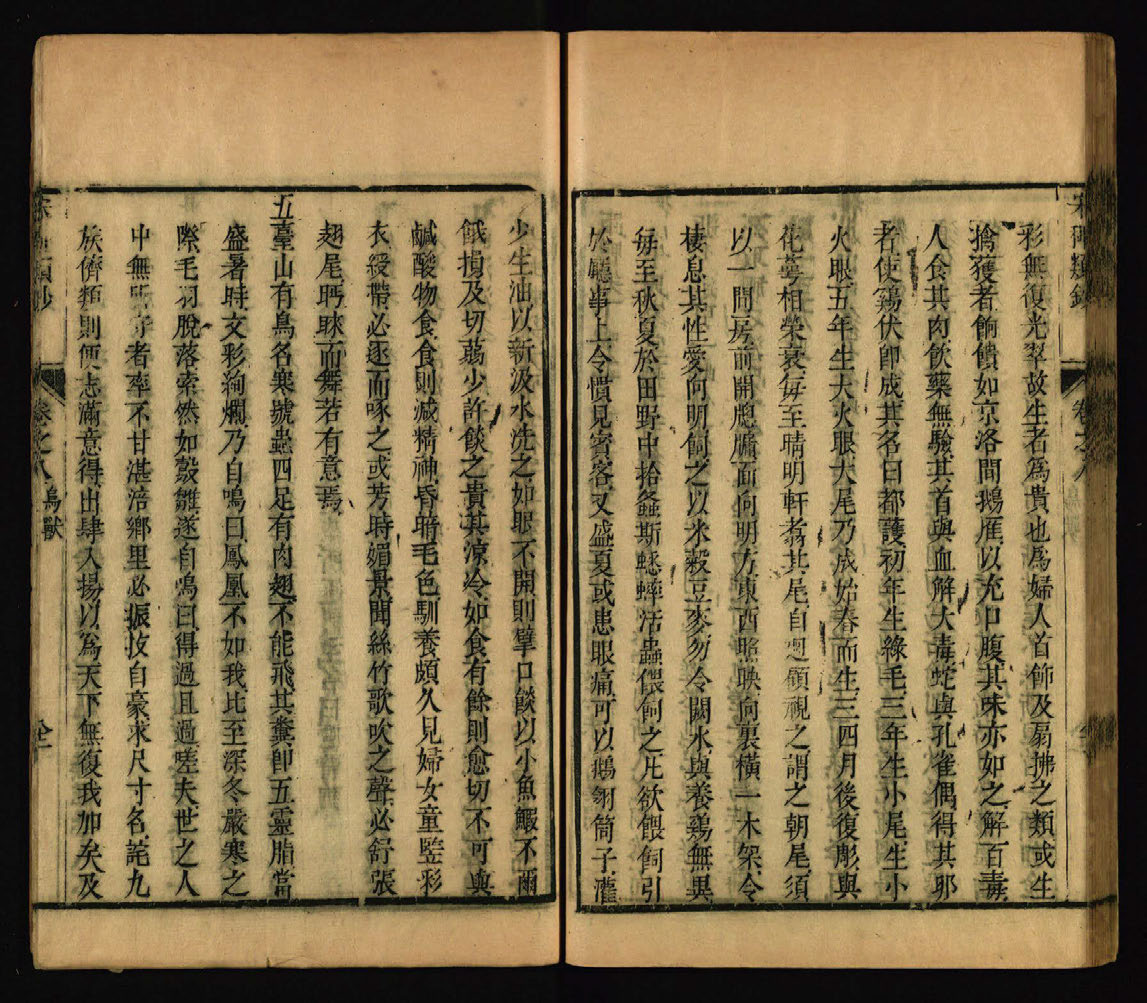 彩無復光翠故生者為貴也為婦人首飾及扇拂之類或生
擒獲者餉饋如京洛間鵝雁以充口腹其味亦如之解百毒
人食其肉飲藥無驗其首與血解大毒蛇與孔雀偶得其卵
者使鷄伏即成其名曰都護初年生綠毛三年生小尾生小
火眼五年生大火眼大尾乃成始春而生三四月後復彫與
花萼相榮衰每至晴明軒翥其尾自廻顧視之謂之朝尾須
以一間房前開牕牖面向明方東西照映向裏橫一木架令
棲息其性愛向明飼之以米穀豆麥勿令闕水與養鷄無異
每至秋夏於田野中拾螽斯蟋蟀活蟲餵飼之凡欲餵飼引
於廳事上令慣見賓客又盛夏或患眼痛可以鵝翎筒子灌
少生油以新汲水洗之如眼不開則擘口餤以小魚鰕不爾
餓損及切蒻少許餤之貴其涼冷如食有餘則愈切不可與
鹹酸物食食則減精神昏暗毛色馴養頗久見婦女童豎彩
衣綬帶必逐而啄之或芳時媚景聞絲竹歌吹之聲必舒張
翅尾眄睞而舞若有意焉
五臺山有鳥名寒號蟲四足有肉翅不能飛其糞即五靈脂當
盛暑時文彩絢爛乃自鳴曰鳳凰不如我比至深冬嚴寒之
際毛羽脫落索然如鷇雛遂自鳴曰得過且過嗟夫世之人
中無所守者率不甘湛涪鄉里必振拔自豪求尺寸名詫九
族儕類則便志滿意得出肆入揚以為天下無復我加矣及
卷之八 鳥獸